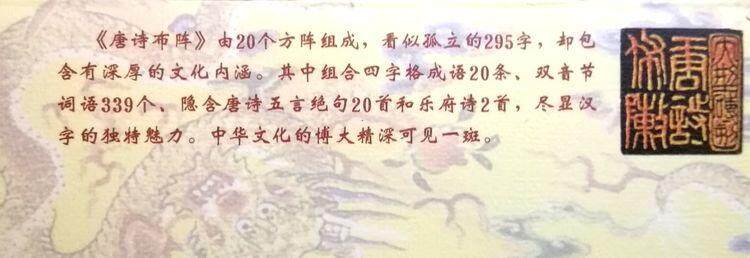 《唐诗布阵》由20个方阵组成，看似孤立的295字，却包
含有深厚的文化内涵。其中组合四字格成语20条、双音节
词语339个、隐含唐诗五言绝句20首和乐府诗2首，尽显汉
字的独特魅力。中华文化的博大精深可见一斑。
唐诗
布阵